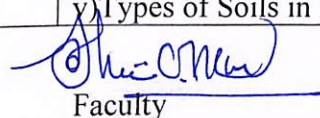 v)Types of Soils in
Faculty